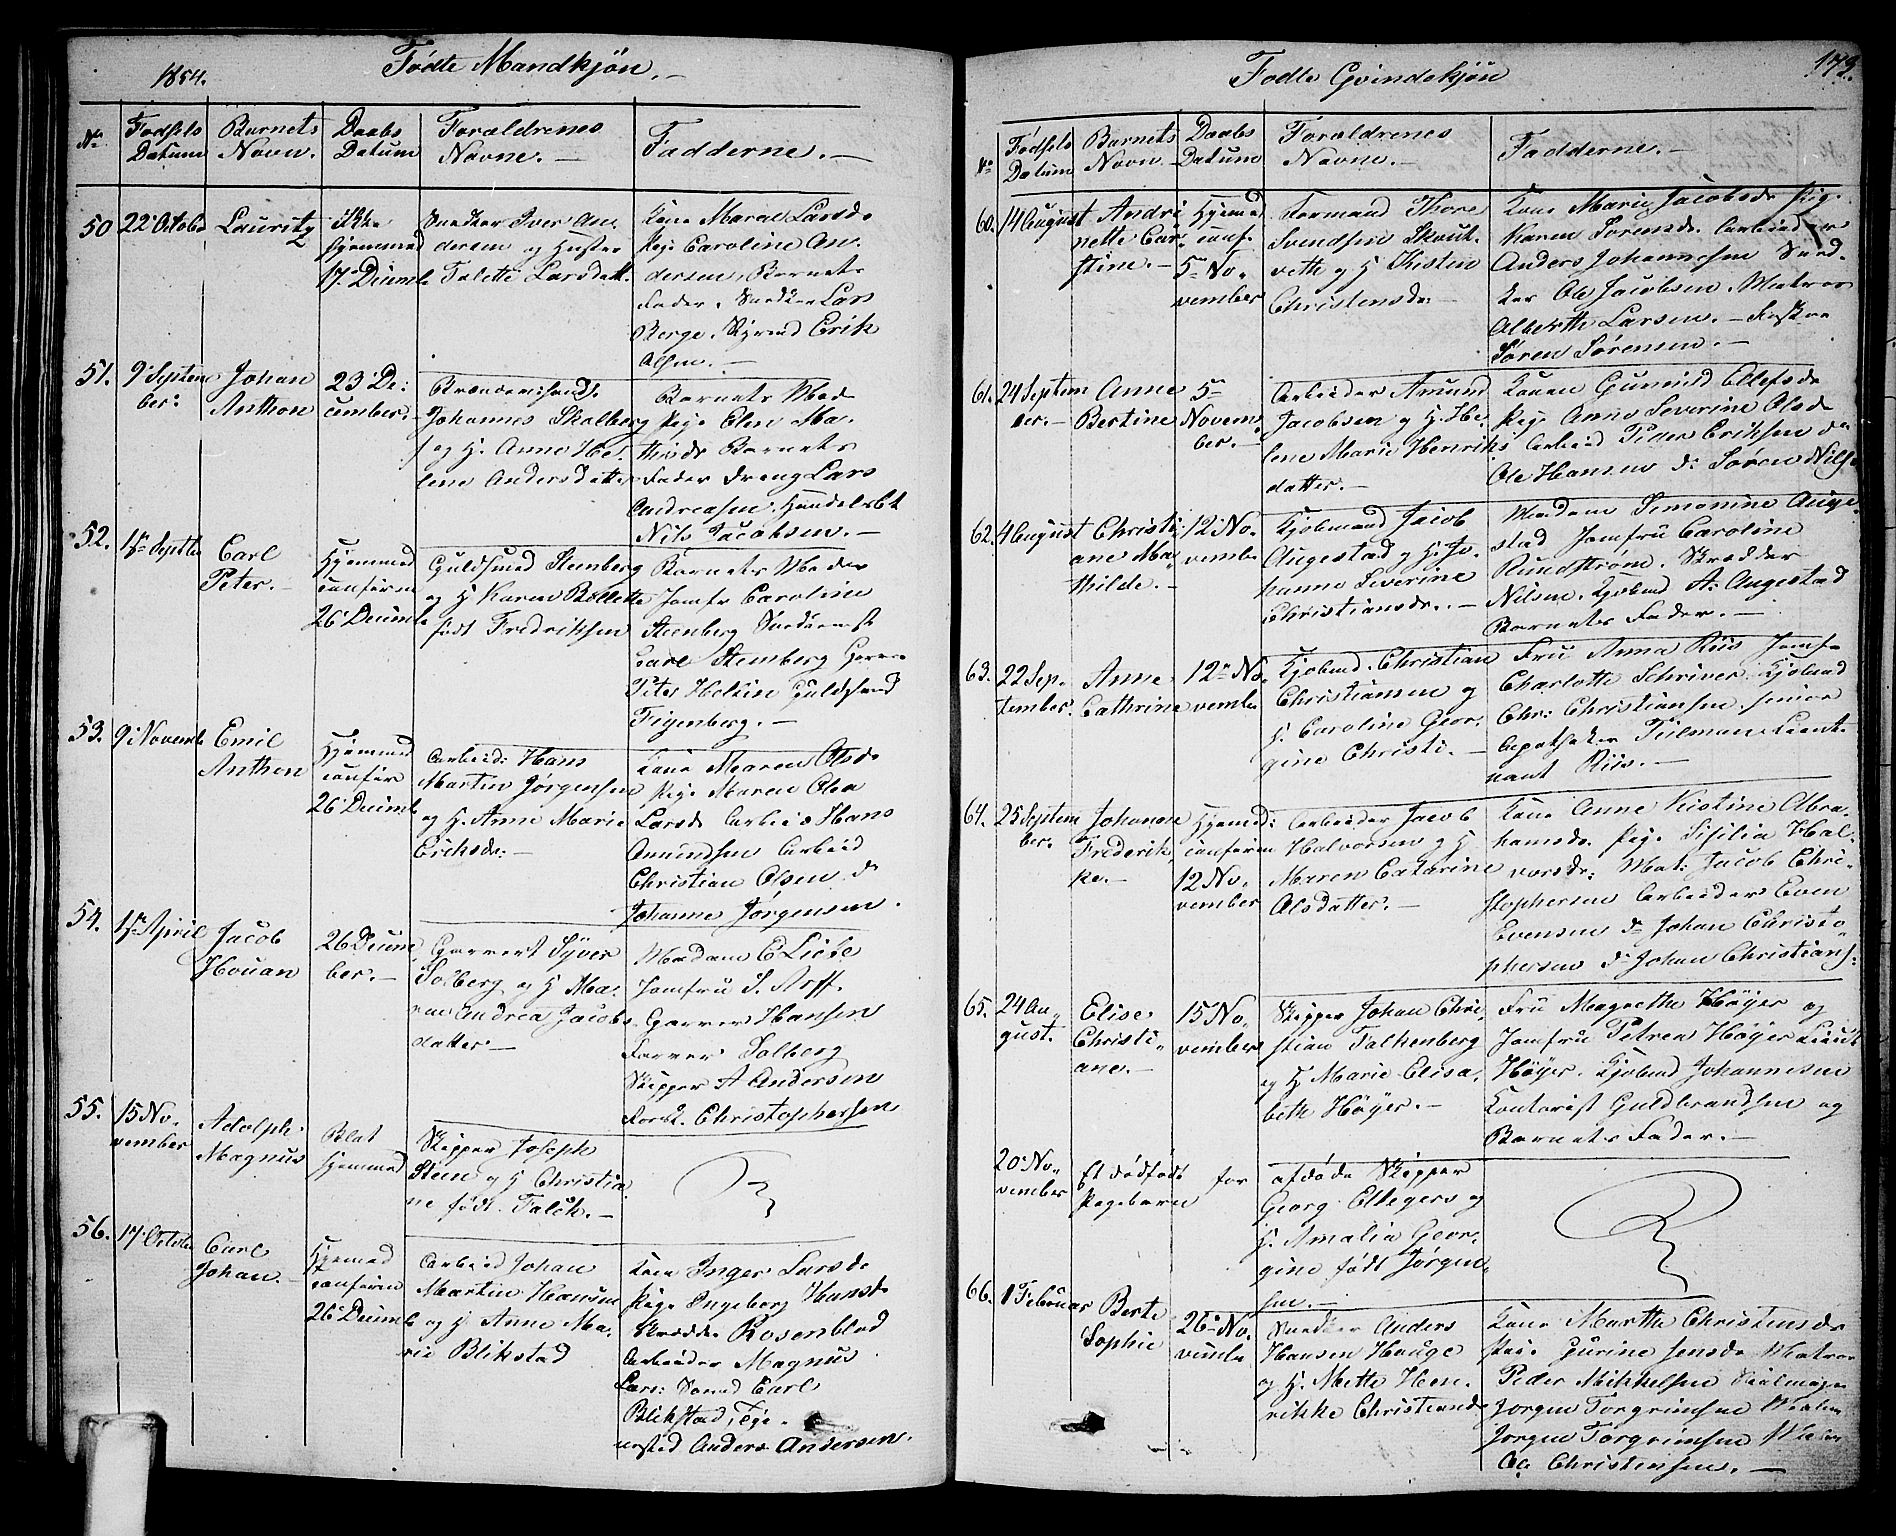 1854.
Födte Mandkjön.
No
Födsels Datum
Barnets Navn.
Daabs Datum
Forældrenes Navne.
Fadderne.
50
22 Octobr
Lauritz
ikke
hjemmed
17 Decemb
Snedker Iver An-
dersen og Hustru
Talette Larsdatt.
Kone Maren Larsd.
Pige Caroline An-
dersen, Barnets
Fader. Snedker Lars
Berge. Styrmd Erik
Olsen.
51.
9 Septem
ber.
Johan
Anthon
23 De-
cember.
Johannes Skalberg
og H. Anne He-
lene Andersdatter
Barnets Mod
Pige Elen Ma-
thilde Barnets
Fader Dreng Lars
Andreasen. Handelsbt
Nils Jacobsen.
52.
1ste Septbr
Carl
Peter.
Hjemmed
conferen
26 Decemb
Guldsmed Steenberg
og H Karen Bollette
født Fredriksen
Barnets Moder
Jomfr Caroline
Steenberg
Carl Stemberg
Guldsmed
Figenberg.
53.
9 Novemb
Emil
Anthon
Hjemmed
confer
26 Decemb
Arbeid: Hans
Martin Jørgensen
og H. Anne Marie
Eriksdr.
Kone Maren Olsd.
Pige Maren Olea
Larsd Arbeid Hans
Amundsen Arbeid
Christian Olsen do
Johanne Jørgensen.
54.
1ste April
Jacob
Houan
26 Decem
ber.
Garver Syver
Solberg og H Ma-
ren Andrea Jacobs
datter
Madam E Liese
Jomfru S. Arff.
Garver Hansen
Farver Solberg
Skipper A Andersen
Forst. Christophersen
55.
15 No-
vember
Adolph
Magnus
Blot
hjemmed
Skipper Joseph
Steen og H Christia-
ne født Falch.
56.
17 Octobr
Carl
Johan.
Hjemmed
conferen
26 Decemb
Arbeid Johan
Martin Hansen
og H Anne Ma-
rie Blikstad
Kone Inger Larsd.
Pige Ingeborg Hansd.
Skrædder Rosenblad
Arbeider Magnus
Lars: Smed Carl
Blikstad, Tøie-
ersted Anders Andersen.
173.
Födte Qvindekjön
No
Födsels Datum
Barnets Navn
Daabs Datum
Forældrenes Navne.
Fadderne.
60.
14 August
Andri
nette Car-
stine.
Hjemed
conf.
5te No-
vember
Formand Thore
Svendsen Skout-
veth og H Kisten
Christensdr
Kone Marie Jacobsdr Pige
Karen Sørensd. Arbeider
Anders Johannesen Sned-
ker Ole Jacobsen Matros
Alberth Larsen.
Søren Sørensen.
61.
24 Septem
ber.
Anne
Bertine
5te
Novem-
ber.
Arbeider Amund
Jacobsen og H. He-
lene Marie Henriks
datter.
Konen Gunnild Ellefsdr
Pige Anne Severine Olsd
Arbeid Peder Eriksen do
Ole Hansen do Søren Nilsen
62.
4 August
Christi-
ane Ma-
thilde.
12 No-
vembe
Kjøbmand Jacob
Augestad og H. Jo-
hanne Severine
Christiansdr.
Madam Simonine Auge-
stad Jomfru Caroline
Rundstrøm. Skredder
Nilsen. Kjøbmd A. Augestad
Barnets Fader.
63.
22 Sep-
tember.
Anne
Cathrine
12te No-
vembe
Kjøbmd. Christian
Christiansen og
H. Caroline Geor-
gine Christi.
Fru Anna Riis Jomfr
Charlotte Schriver. Kjøbmd
Chr: Christiansen senior
Apotheker Tielman Lieut-
nant Riis.
64.
25 Septem
ber.
Johanne
Frederik-
ke.
Hjemed:
conferen
12 No-
vember
Arbeider Jacob
Halvorsen og H
Maren Catarine
Olsdatter.
Kone Anne Kistine Abra-
hamsd. Pige Sisilia Hal-
vorsdr: Mat: Jacob Chri-
stophersen Arbeider Even
Evensen do Johan Christo-
phersen do Johan Christians:
65.
24 Au-
gust.
Elise
Christi-
ane.
15 No-
vember
Skipper Johan Chri-
stian Falkenberg
og H Marie Elisa-
beth Høyer.
Fru Magrethe Høyer og
Jomfru Petrea Høyer Lieut
Høyer. Kjøbmd Johannesen
Kontorist Guldbrandsen og
Barnets Fader.
20 No-
vember
Et dødfødt
Pigebarn
for
afdøde Skipper
Georg Ellegers og
H. Amalia Geor-
gine født Jørgen-
sen.
66.
1 Februar
Berte
Sophie
26te No-
vembe
Snedker Anders
Hansen Houge
og H. Mette Hen-
rikke Christiansd
Kone Marthe Christensdr
Pige Gurine Jensdr Matros
Peder Mikkelsen Seilmager
Jørgen Torgrimsen
Jørgen Torgrimsen
Ole Christensen.